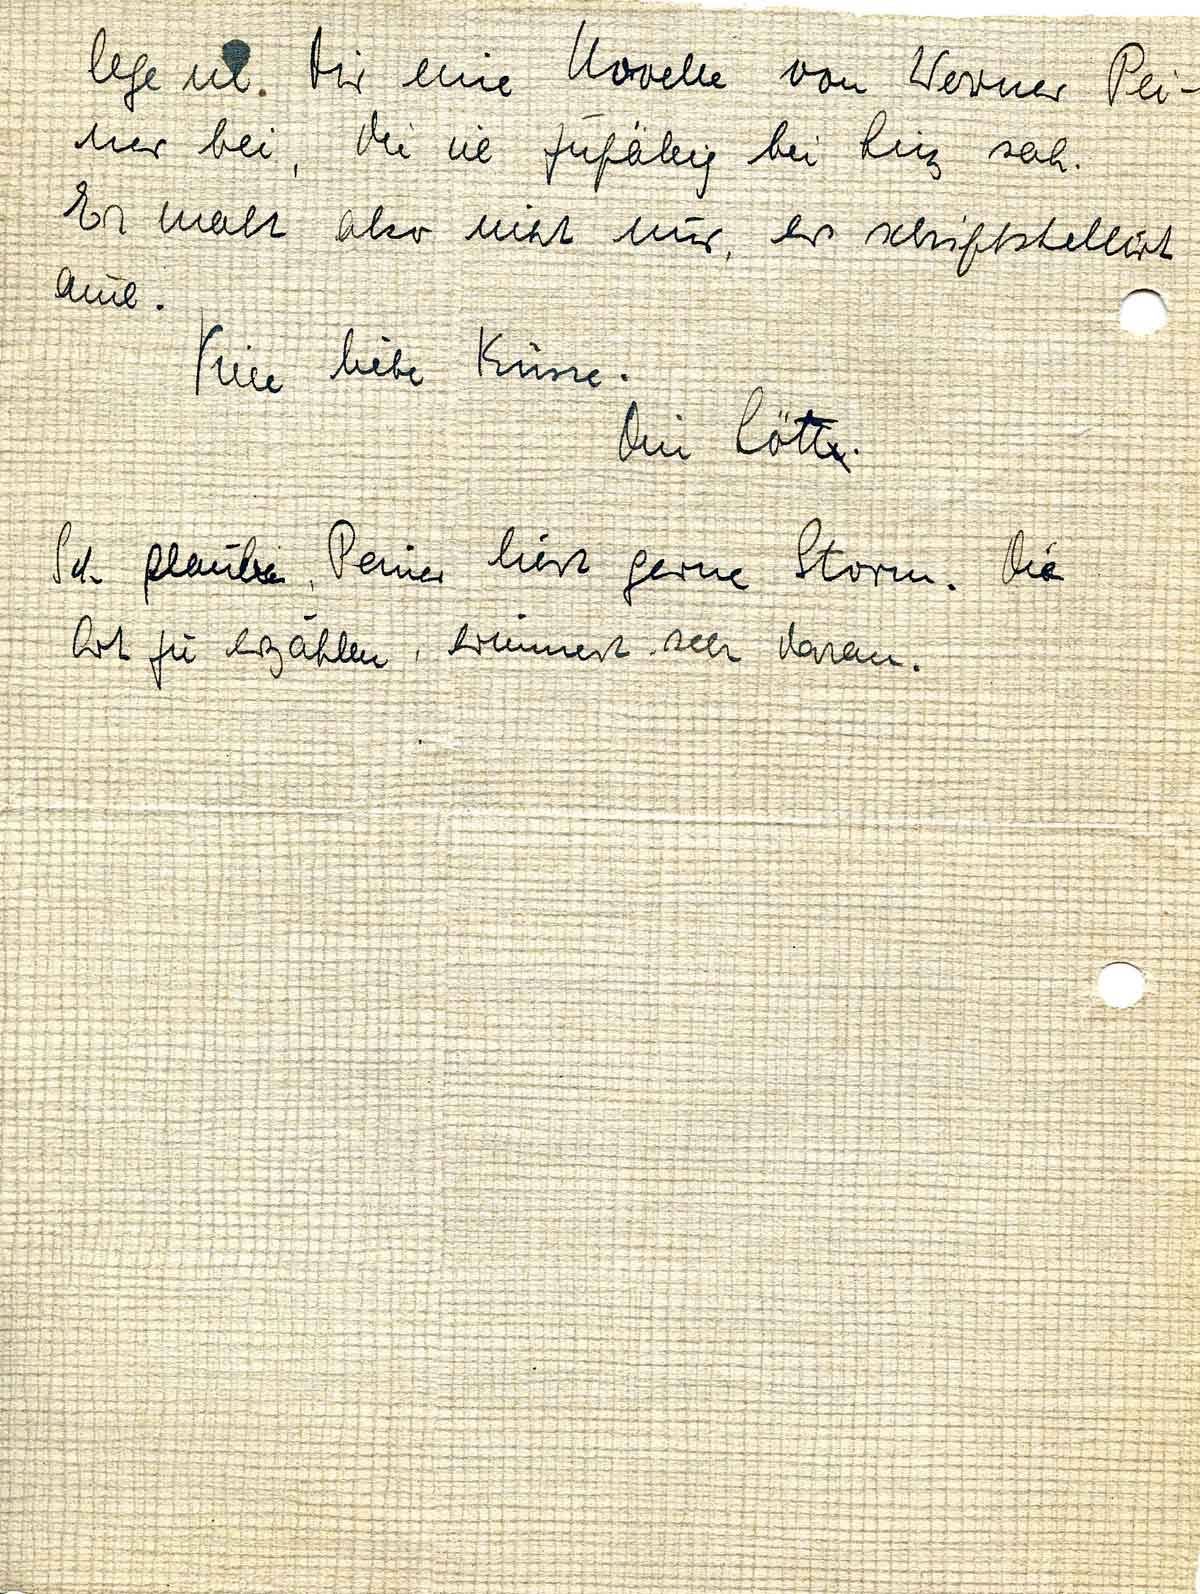 lege ich. Dir eine Novelle von Werner Pei-
ner bei, die ich zufällig bei Linz sah.
Er malt also nicht nur, er schriftstellert
auch.
Viele liebe Küsse.
Dein Lötte.
Ich glaube, Peiner liest gerne Storm. Die
Art zu erzählen, erinnert sehr daran.